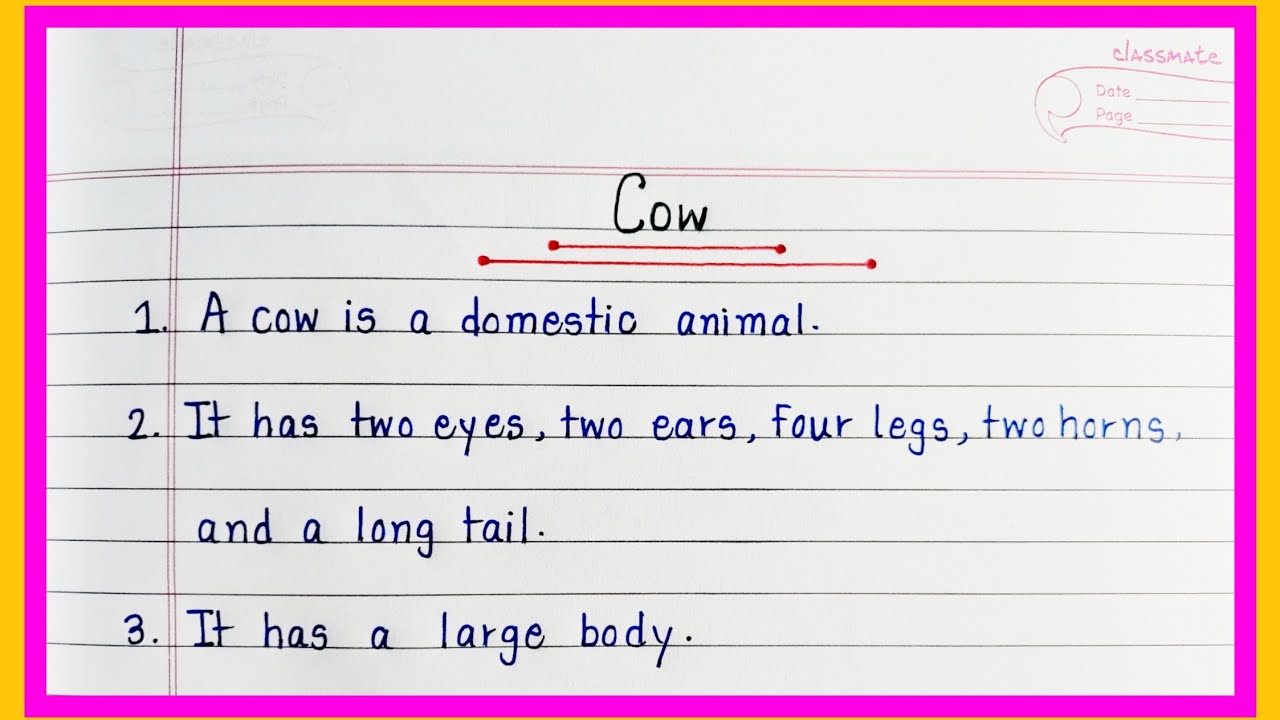 classmate
Date
Page
Cow
1. A cow is a domestic animal.
2. It has two eyes, two ears, four legs, two horns,
and a long tail.
3. It has a large body.